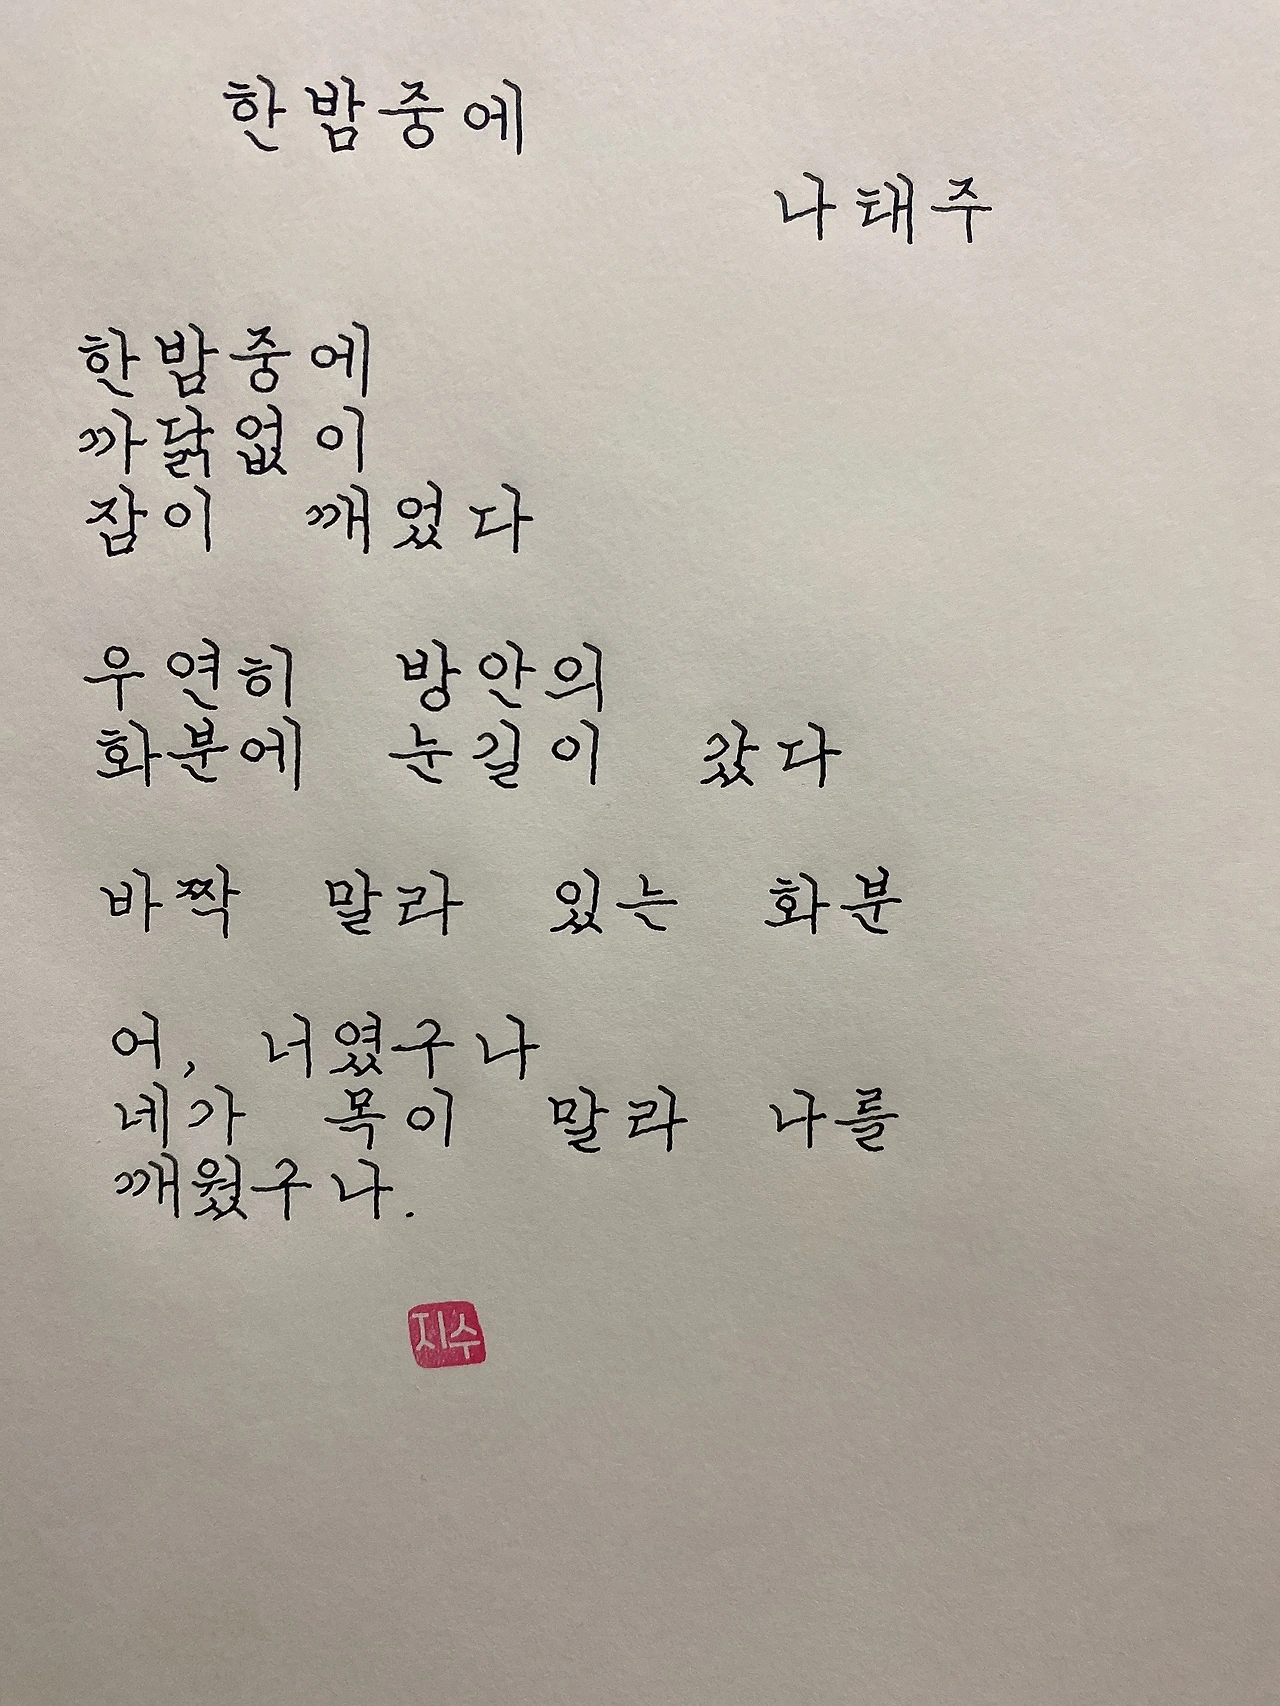 한밤중에
나태주
한밤중에
까닭없이
잠이 깨었다
우연히 방안의
화분에 눈길이 갔다
바짝 말라 있는 화분
어, 너였구나
네가 목이 말라 나를
깨웠구나.
지수